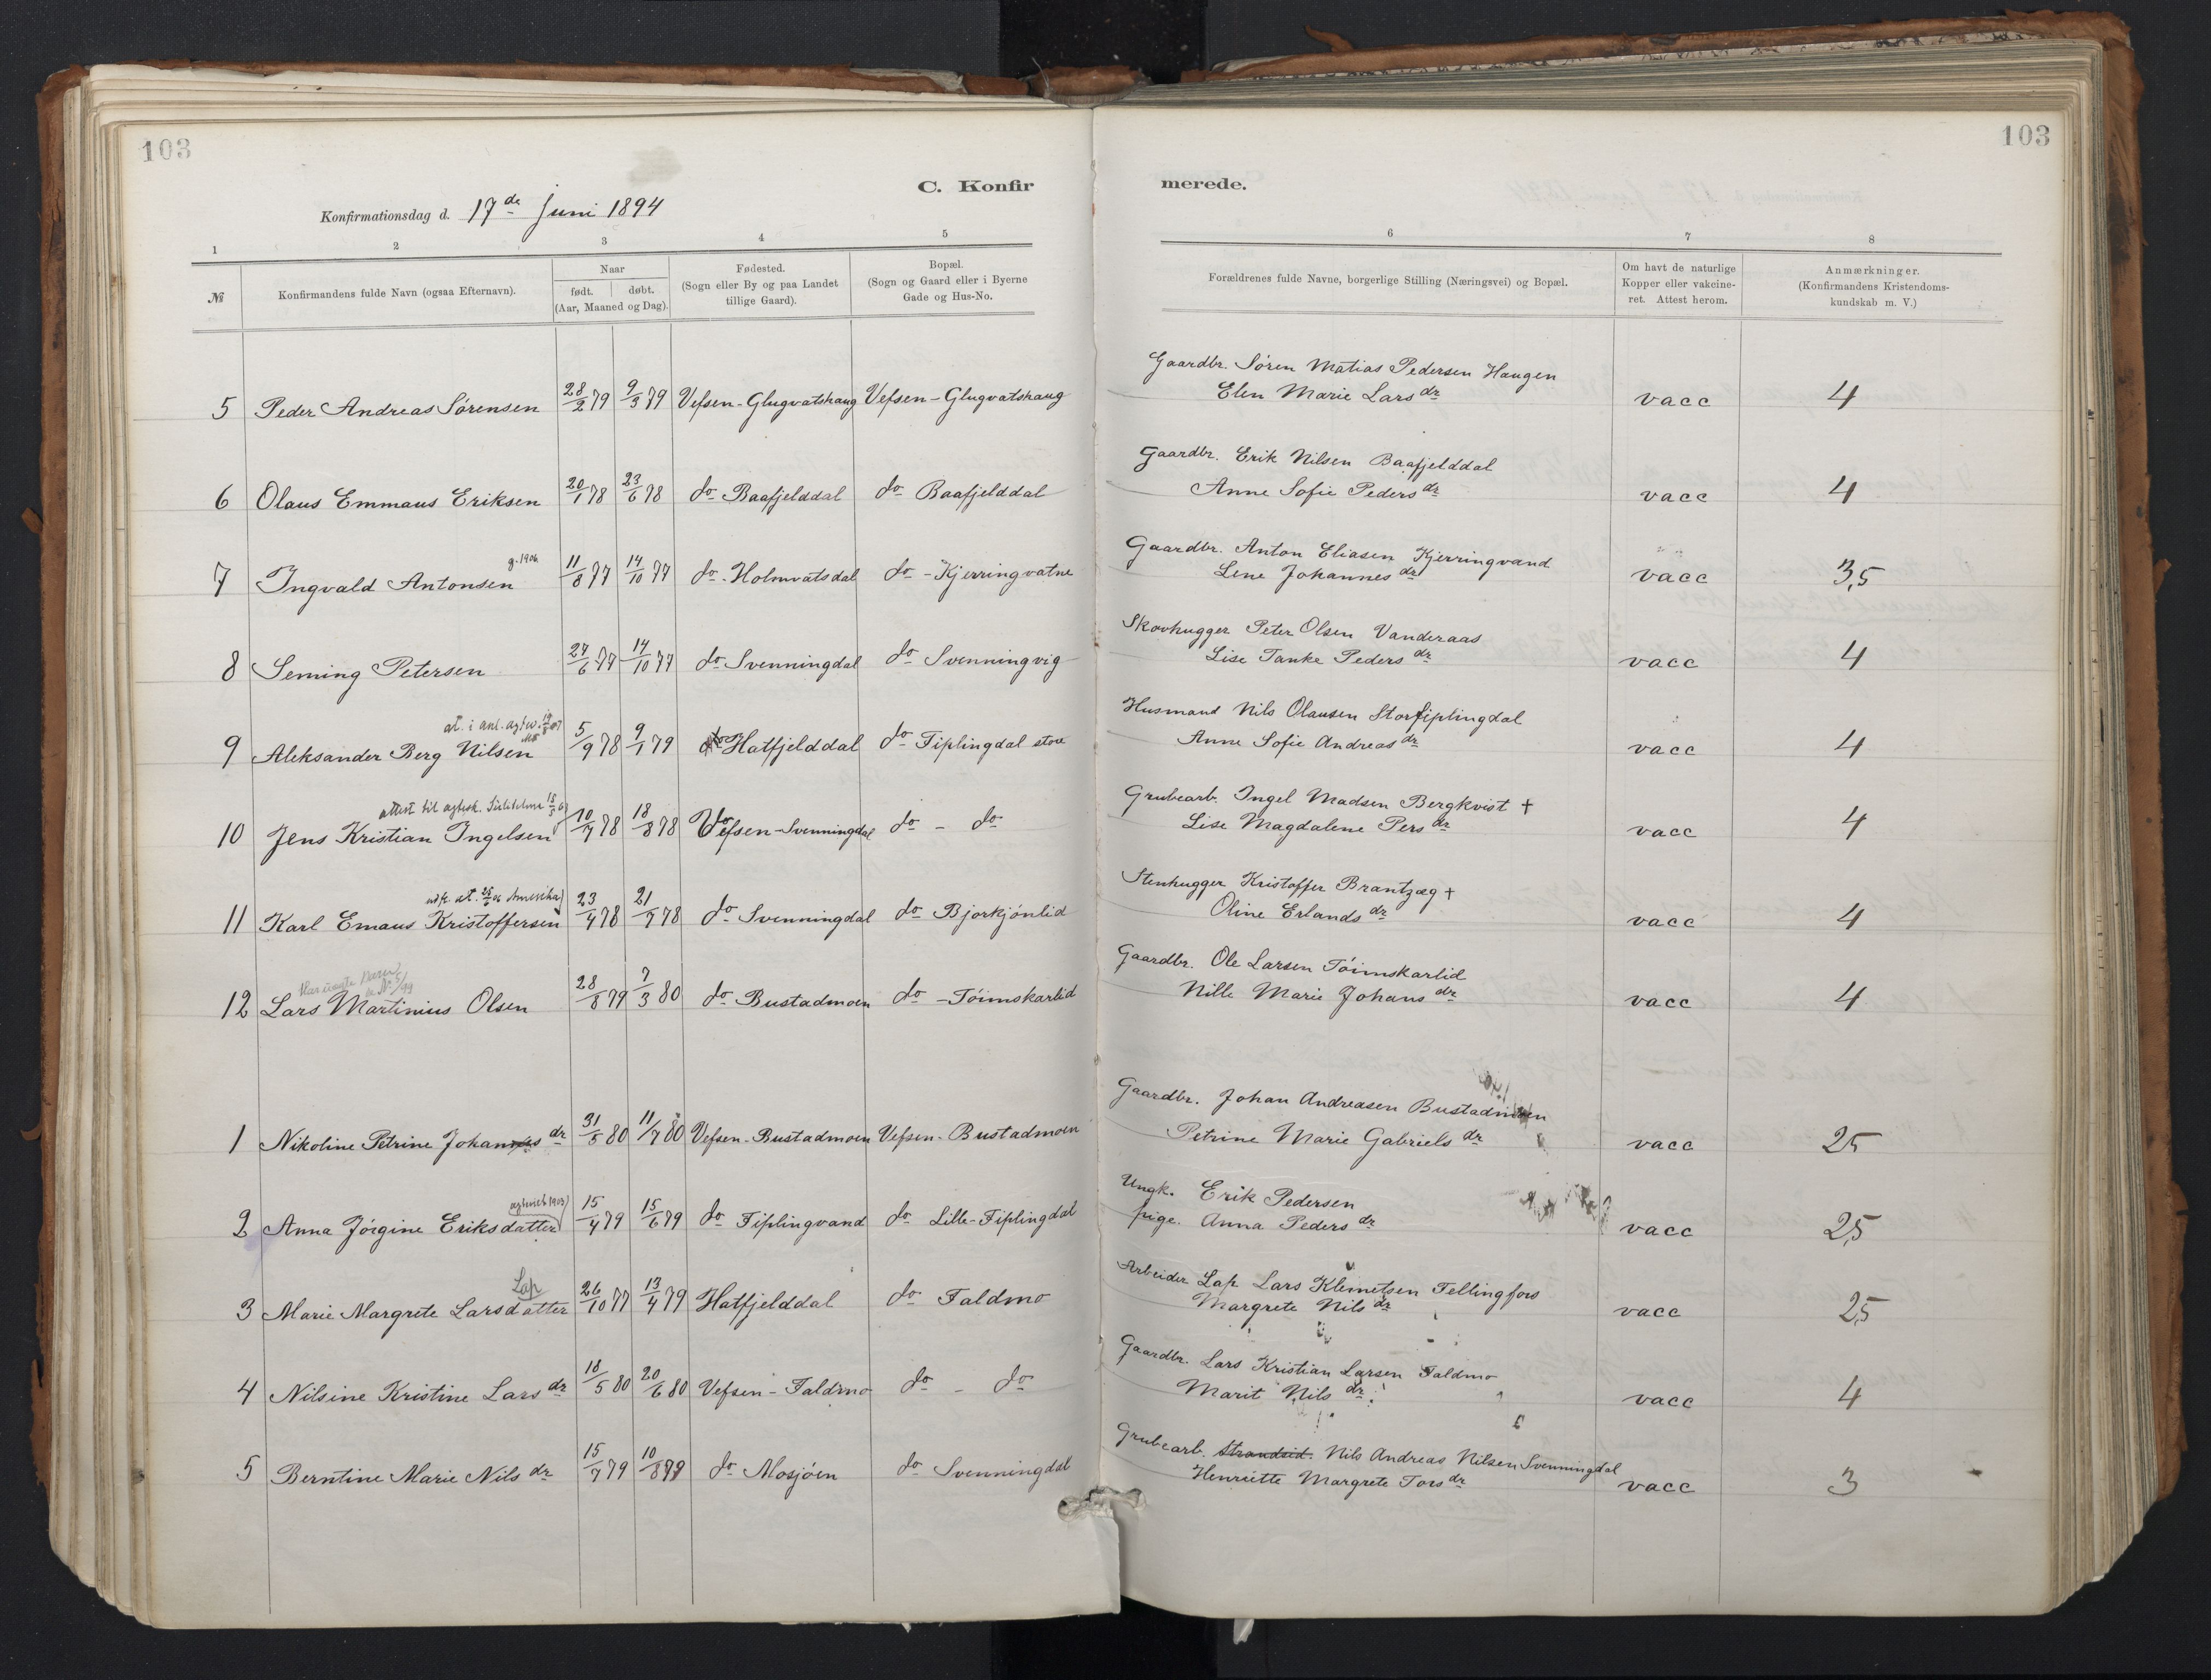 103
103
C. Konfir
merede.
Konfirmationsdag d. 17de Juni 1894
1 2 3 4 5
6 7 8
№
Konfirmandens fulde Navn (ogsaa Efternavn).
Naar
født. døbt.
(Aar, Maaned og Dag).
Fødested.
(Sogn eller By og paa Landet
tillige Gaard).
Bopæl.
(Sogn og Gaard eller i Byerne
Gade og Hus-No.
Forældrenes fulde Navne, borgerlige Stilling (Næringsvei) og Bopæl.
Om havt de naturlige
Kopper eller vakcine-
ret. Attest herom.
Anmærkninger.
(Konfirmandens Kristendoms-
kundskab m. V.)
5 Peder Andreas Sørensen 28/2 79 9/3 79 Vefsen-Glugvatshaug Vefsen-Glugvatshaug
Gaardbr. Søren Matias Pedersen Haugen
Elen Marie Lars dr vacc 4
6 Olaus Emmaus Eriksen 20/1 78 23/6 78 do Baafjelddal do Baafjelddal
Gaardbr. Erik Nilsen Baafjelddal
Anne Sofie Peders dr vacc 4
g. 1906
7 Ingvald Antonsen 11/8 77 14/10 77 do-Holmvatsdal do-Kjerringvatne
Gaardbr. Anton Eliasen Kjerringvand
Lene Johannes dr vacc 3,5
8 Seming Petersen 27/6 77 14/10 77 do Svenningdal do Svenningvig
Skovhugger Peter Olsen Vanderaas
Lise Tanke Peders dr vacc 4
at. i anl.
9 Aleksander Berg Nilsen 5/9 78 9/1 79 Hatfjelddal do Fiplingdal store
Husmand Nils Olausen Storfiplingdal
Anne Sofie Andreas dr vacc 4
attest til
10 Jens Kristian Ingelsen 10/7 78 18/8 78 Vefsen-Svenningdal do - do
Grubearb. Ingel Madsen Bergkvist +
Lise Magdalene Pers dr vacc 4
at. 25/6 06 Amerika
11 Karl Emaus Kristoffersen 23/4 78 21/7 78 do Svenningdal do Bjorkjönlid
Stenhugger Kristoffer Brantzæg +
Oline Erlands dr vacc 4
12 Lars Martinius Olsen 28/8 79 7/3 80 do Bustadmoen do-Töimskarlid
Gaardbr. Ole Larsen Töimskarlid
Nille Marie Johans dr vacc 4
1 Nikoline Petrine Johans dr 31/5 80 11/7 80 Vefsen-Bustadmoen Vefsen-Bustadmoen
Gaardbr. Johan Andreasen Bustadmoen
Petrine Marie Gabriels dr vacc 25
1903
2 Anna Jörgine Eriksdatter 15/4 79 15/6 79 do Fiplingvand do Lille-Fiplingdal
Ungk. Erik Pedersen
pige. Anna Peders dr vacc 2,5
Lap
3 Marie Margrete Larsdatter 26/10 77 13/4 79 Hatfjelddal do Faldmo
Arbeider Lap Lars Klemetsen Fellingfors
Margrete Nils dr vacc 2,5
4 Nilsine Kristine Lars dr 18/5 80 20/6 80 Vefsen-Faldmo do - do
Gaardbr. Lars Kristian Larsen Faldmo
Marit Nils dr vacc 4
5 Berntine Marie Nils dr 15/7 79 10/8 79 do Mosjöen do Svenningdal
Grubearb. Strandsid. Nils Andreas Nilsen Svenningdal
Henriette Margrete Tors dr vacc 3